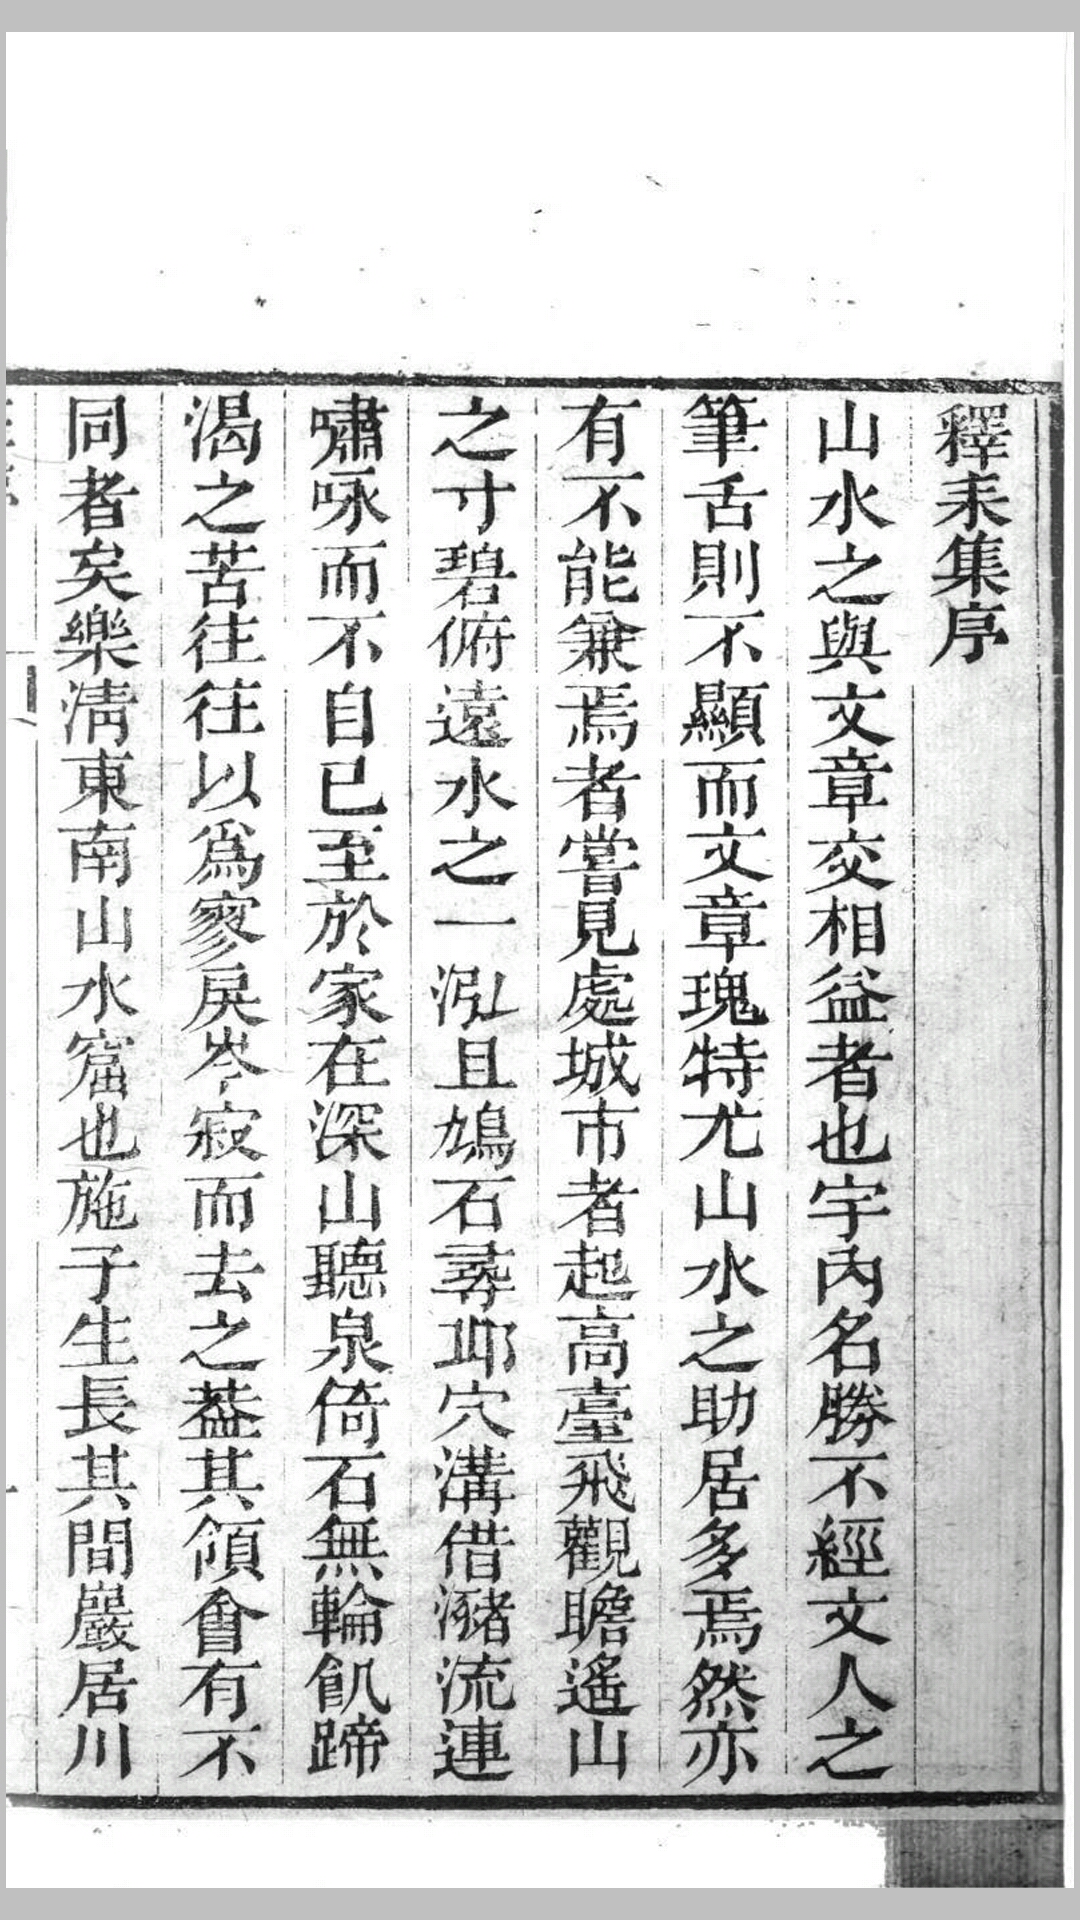 釋耒集序
山水之與文章交相益者也宇內名勝不經文人之
筆舌則不顯而文章瑰特尤山水之助居多焉然亦
有不能兼焉者嘗見處城市者起高臺飛觀瞻遙山
之寸碧俯遠水之一泓且鳩石尋邱穴溝借瀦流連
嘯咏而不自已至於家在深山聽泉倚石無輪飢蹄
渴之苦往往以爲寥戾岑寂而去之葢其領會有不
同者矣樂淸東南山水窟也施子生長其間巖居川